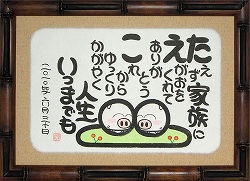 たえず家族に
えがおをくれて
ありがとう
これから
ゆっくり
かがやく
人生
いつまでも
二〇一〇年六月三十日